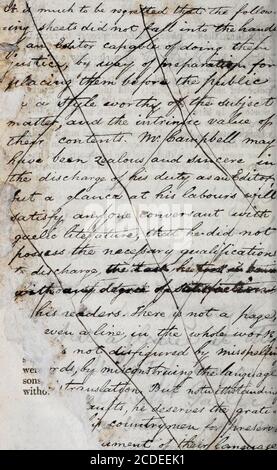 It is much to be regretted that the follow
ing sheets did not fall into the hands
of an Editor capable of doing them
justice, by way of preparation for
placing them before the public
a style worthy of the subject
matter and the intrinsic value of
their contents. Mr. Campbell may
have been zealous and sincere in
the discharge of his duty as an Editor
but a glance at his labours will
satisfy any one conversant with
Gaelic literature, that he did not
possess the necessary qualifications
to discharge the task he took in hand
with any degree of satisfaction
his readers. There is not a page,
even a line in the whole work,
s not disfigured by misspelt
wer rds, by misconstruing the language
sons translation. But notwithstanding
witho. aults, he deserves the grate
countrymen for preserv
ument of their language
alamy
Image ID: 2CDEEK1
www.alamy.com